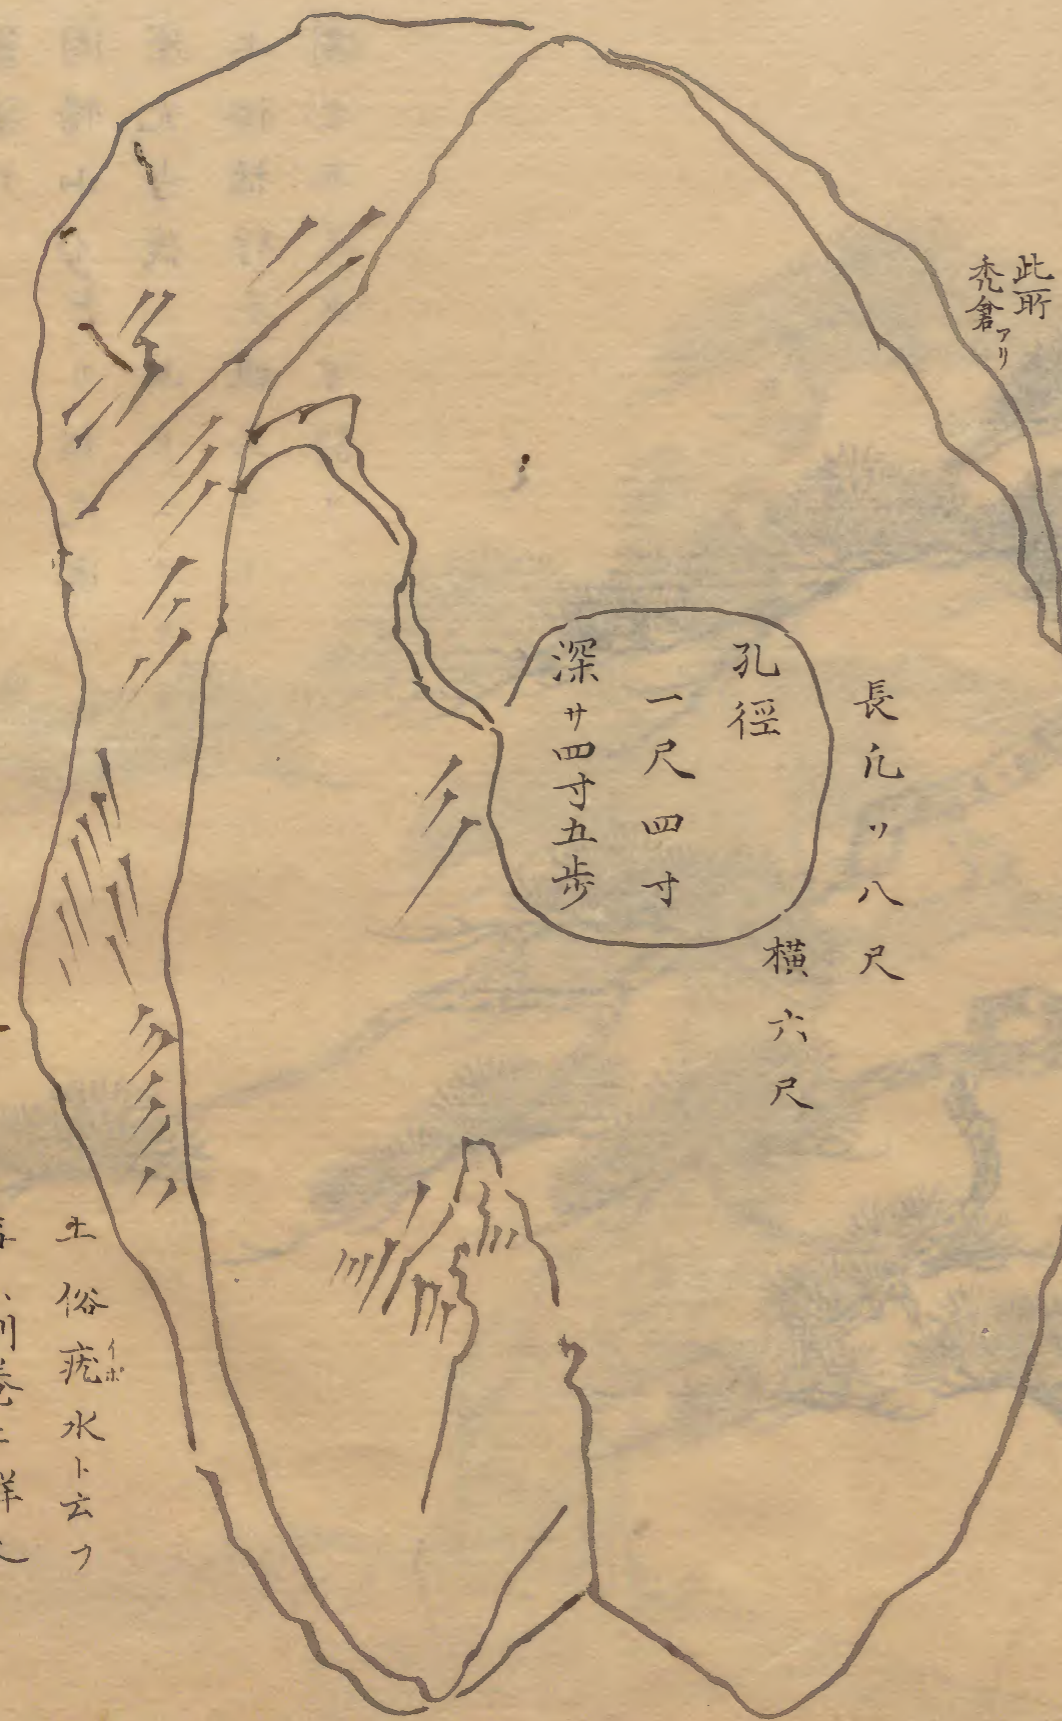 此所
禿倉アリ
長凢ツ八尺
横六尺
孔徑
一尺四寸
深サ四寸五歩
土俗疣水ト云フ
イボ